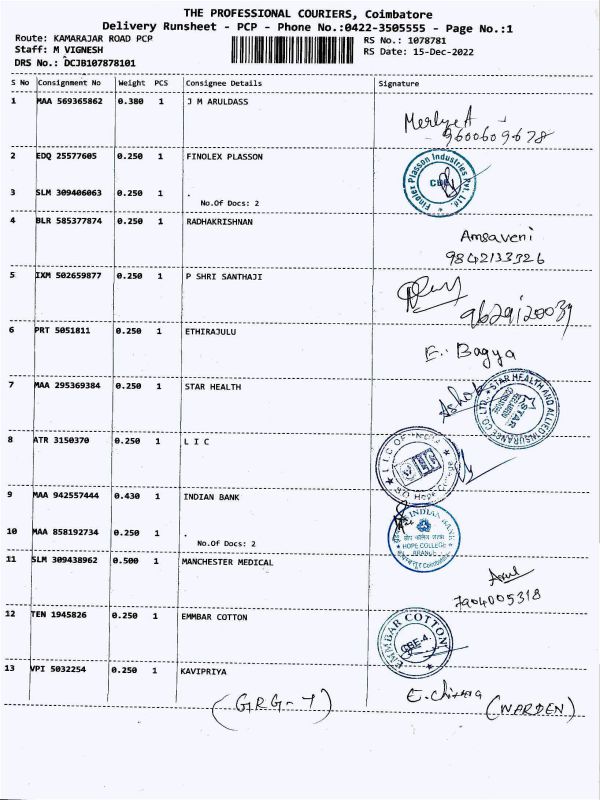 THE PROFESSIONAL COURIERS, Coimbatore
Delivery Runsheet - PCP - Phone No.:0422-3505555 - Page No.:1
Route: KAMARAJAR ROAD PCP
RS No.: 1078781
Staff: M VIGNESH
RS Date: 15-Dec-2022
DRS No.: DCJB107878101
S No Consignment No Weight PCS Consignee Details Signature
1 MAA 569365862 0.380 1 J M ARULDASS
9600609678
2 EDQ 25577605 0.250 1 FINOLEX PLASSON
Finolex Plasson Industries Pvt. Ltd.
CBE
3 SLM 309406063 0.250 1 .
No.Of Docs: 2
4 BLR 585377874 0.250 1 RADHAKRISHNAN
Amsaveni
9842133326
5 IXM 502659877 0.250 1 P SHRI SANTHAJI
6 PRT 5051811 0.250 1 ETHIRAJULU
E. Bagya
7 MAA 295369384 0.250 1 STAR HEALTH
Ashok
STAR HEALTH AND ALLIED INSURANCE CO. LTD.
STAR
8 ATR 3150370 0.250 1 L I C
LIC OF
9 MAA 942557444 0.430 1 INDIAN BANK
INDIAN BANK
HOPE COLLEGE
BRANCH
10 MAA 858192734 0.250 1 .
No.Of Docs: 2
11 SLM 309438962 0.500 1 MANCHESTER MEDICAL
Arul
7904005318
12 TEN 1945826 0.250 1 EMMBAR COTTON
EMMBAR COTTON
CBE-4.
13 VPI 5032254 0.250 1 KAVIPRIYA
(GRG-7)
E. Chitra (WARDEN)